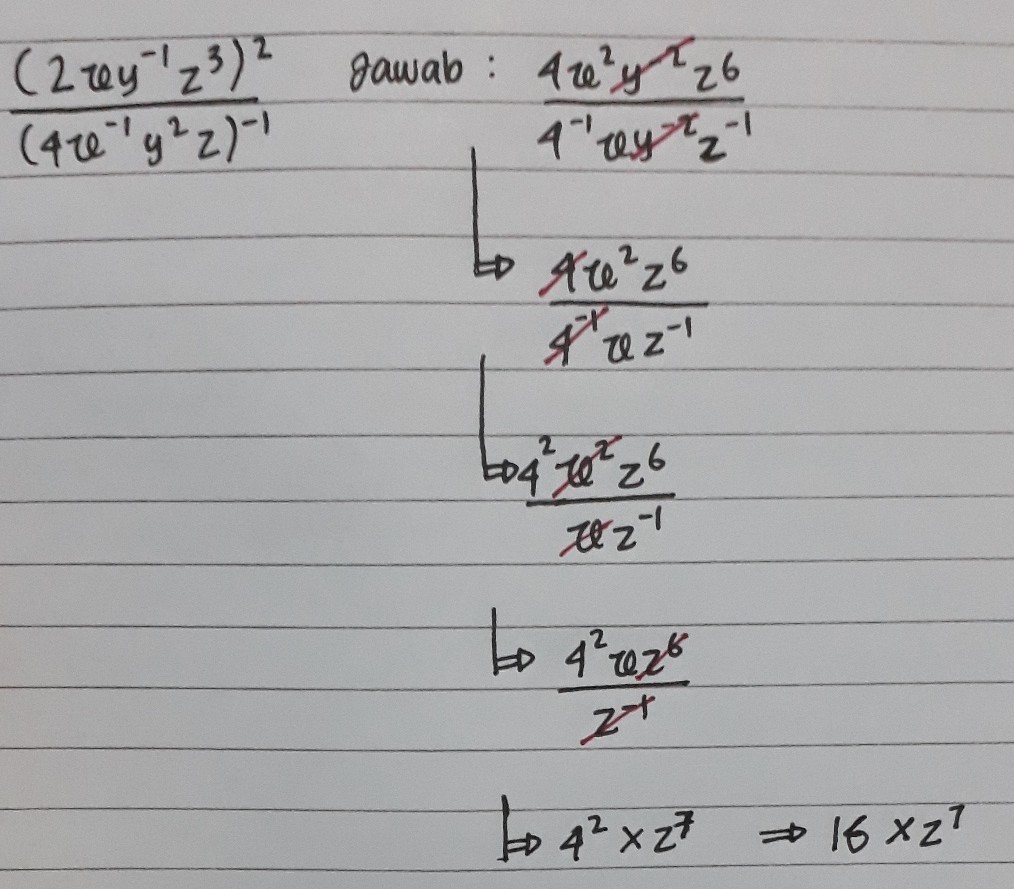 (2xy⁻¹z³)² / (4x⁻¹y²z)⁻¹ Jawab : 4x²y⁻²z⁶ / 4⁻¹xy⁻²z⁻¹
⇒ 4x²z⁶ / 4⁻¹xz⁻¹
⇒ 4²x²z⁶ / xz⁻¹
⇒ 4²xz⁶ / z⁻¹
⇒ 4² x z⁷ ⇒ 16 x z⁷